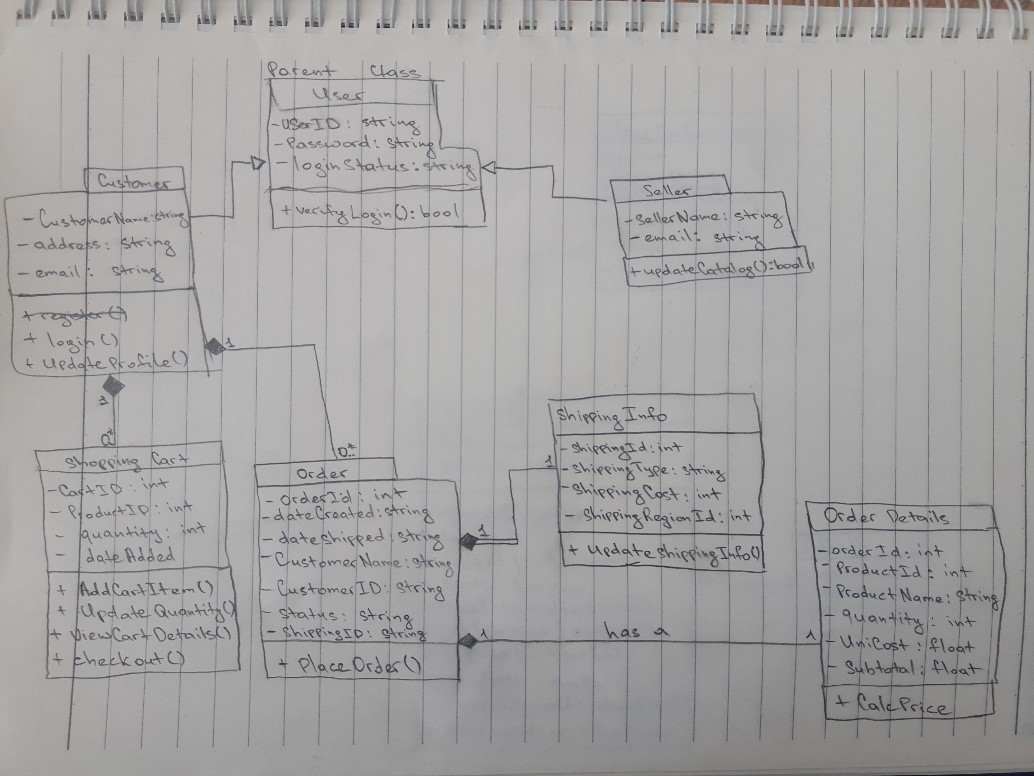 Parent Class
User
- UserID: string
- Password: string
- loginStatus: string
+ verifyLogin(): bool
Customer
- CustomerName: string
- address: string
- email: string
+ register()
+ login()
+ UpdateProfile()
Seller
- SellerName: string
- email: string
+ updateCatalog(): bool
1
1
0*
0*
Shopping Cart
- CartID: int
- ProductID: int
- quantity: int
- dateAdded
+ AddCartItem()
+ UpdateQuantity()
+ viewCartDetails()
+ checkout()
Order
- OrderId: int
- dateCreated: string
- dateshipped: string
- CustomerName: string
- CustomerID: string
- status: string
- ShippingID: string
+ PlaceOrder()
1
1
Shipping Info
- ShippingId: int
- ShippingType: string
- ShippingCost: int
- ShippingRegionId: int
+ UpdateshippingInfo()
1
has a
1
Order Details
- orderId: int
- ProductId: int
- ProductName: String
- quantity: int
- UniCost: float
- Subtotal: float
+ CalcPrice